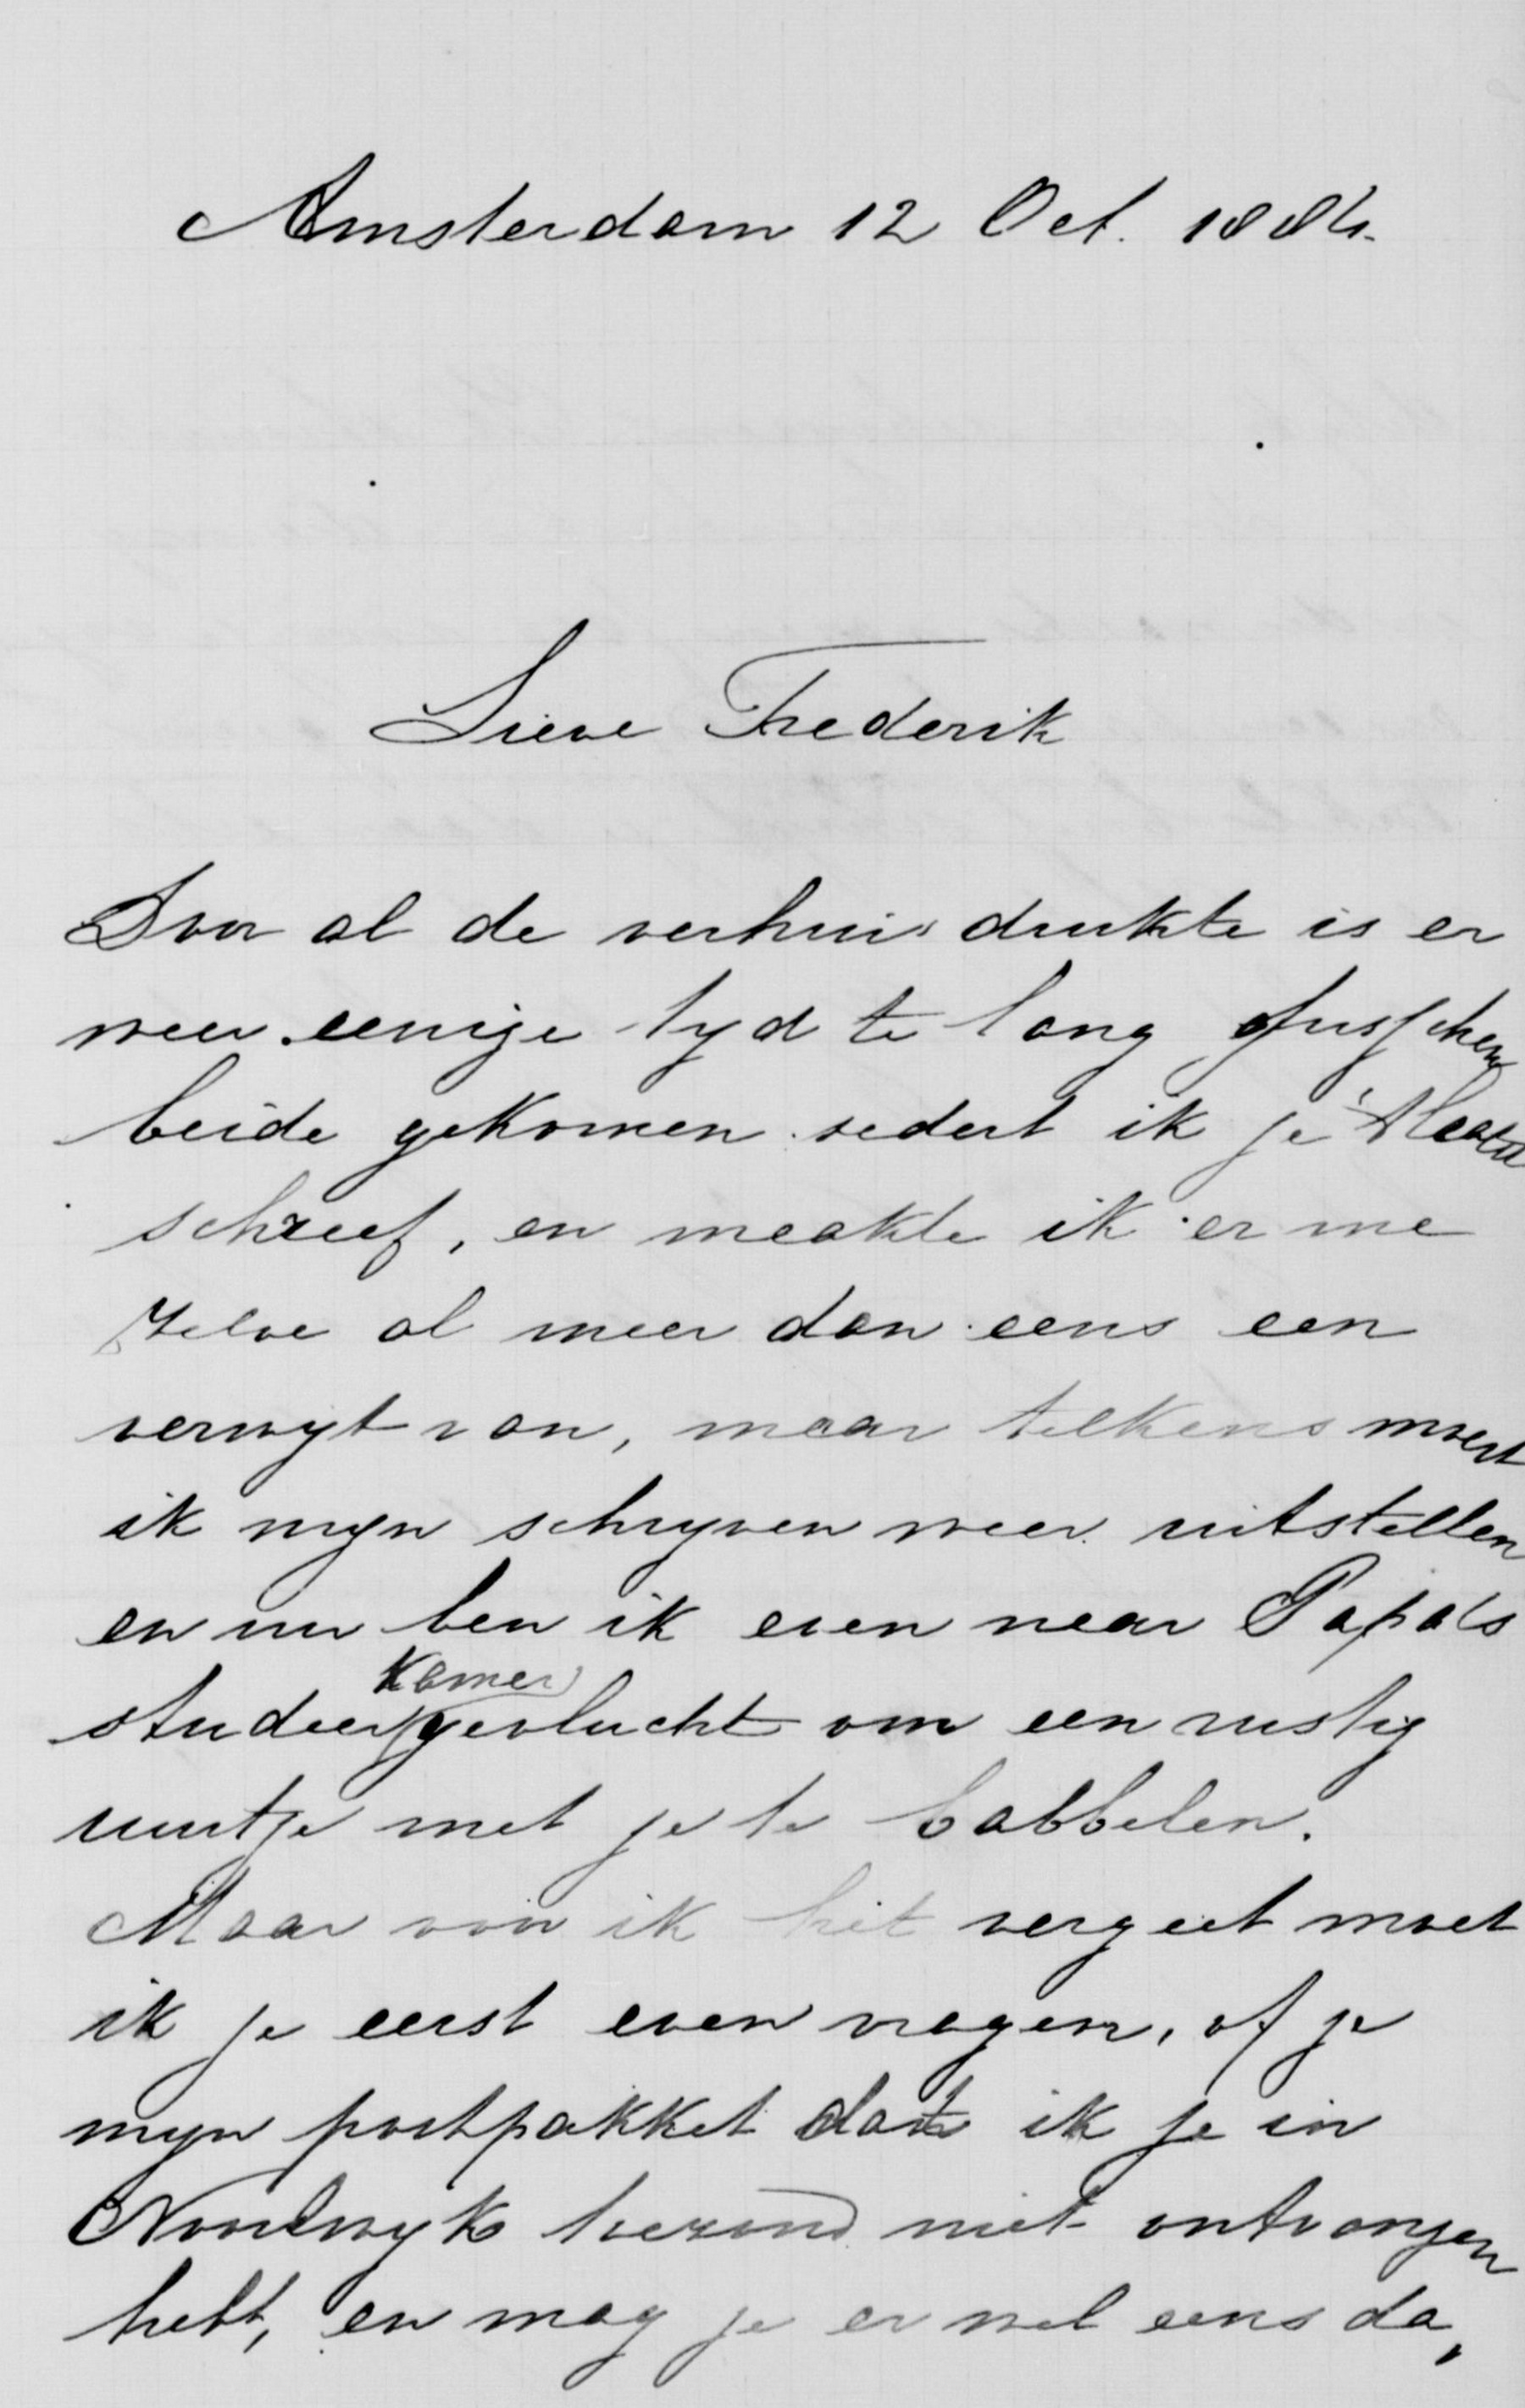 Amsterdam 12 Oct. 1884.
Lieve Frederik
Door al de verhuisdrukte is er
weer eenige tyd te lang tusschen
beide gekomen sedert ik je 't laatst
schreef, en maakte ik er me
zelve al meer dan eens een
verwyt van, maar telkens moest
ik myn schryven weer uitstellen
en nu ben ik even naar Papa's
studeer kamer gevlucht om een rustig
uurtje met je te babbelen.
Maar voor ik het vergeet moet
ik je eerst even vragen, of je
myn postpakket dat ik je in
Noordwyk toezond niet ontvangen
hebt, en mag je er wel eens da,